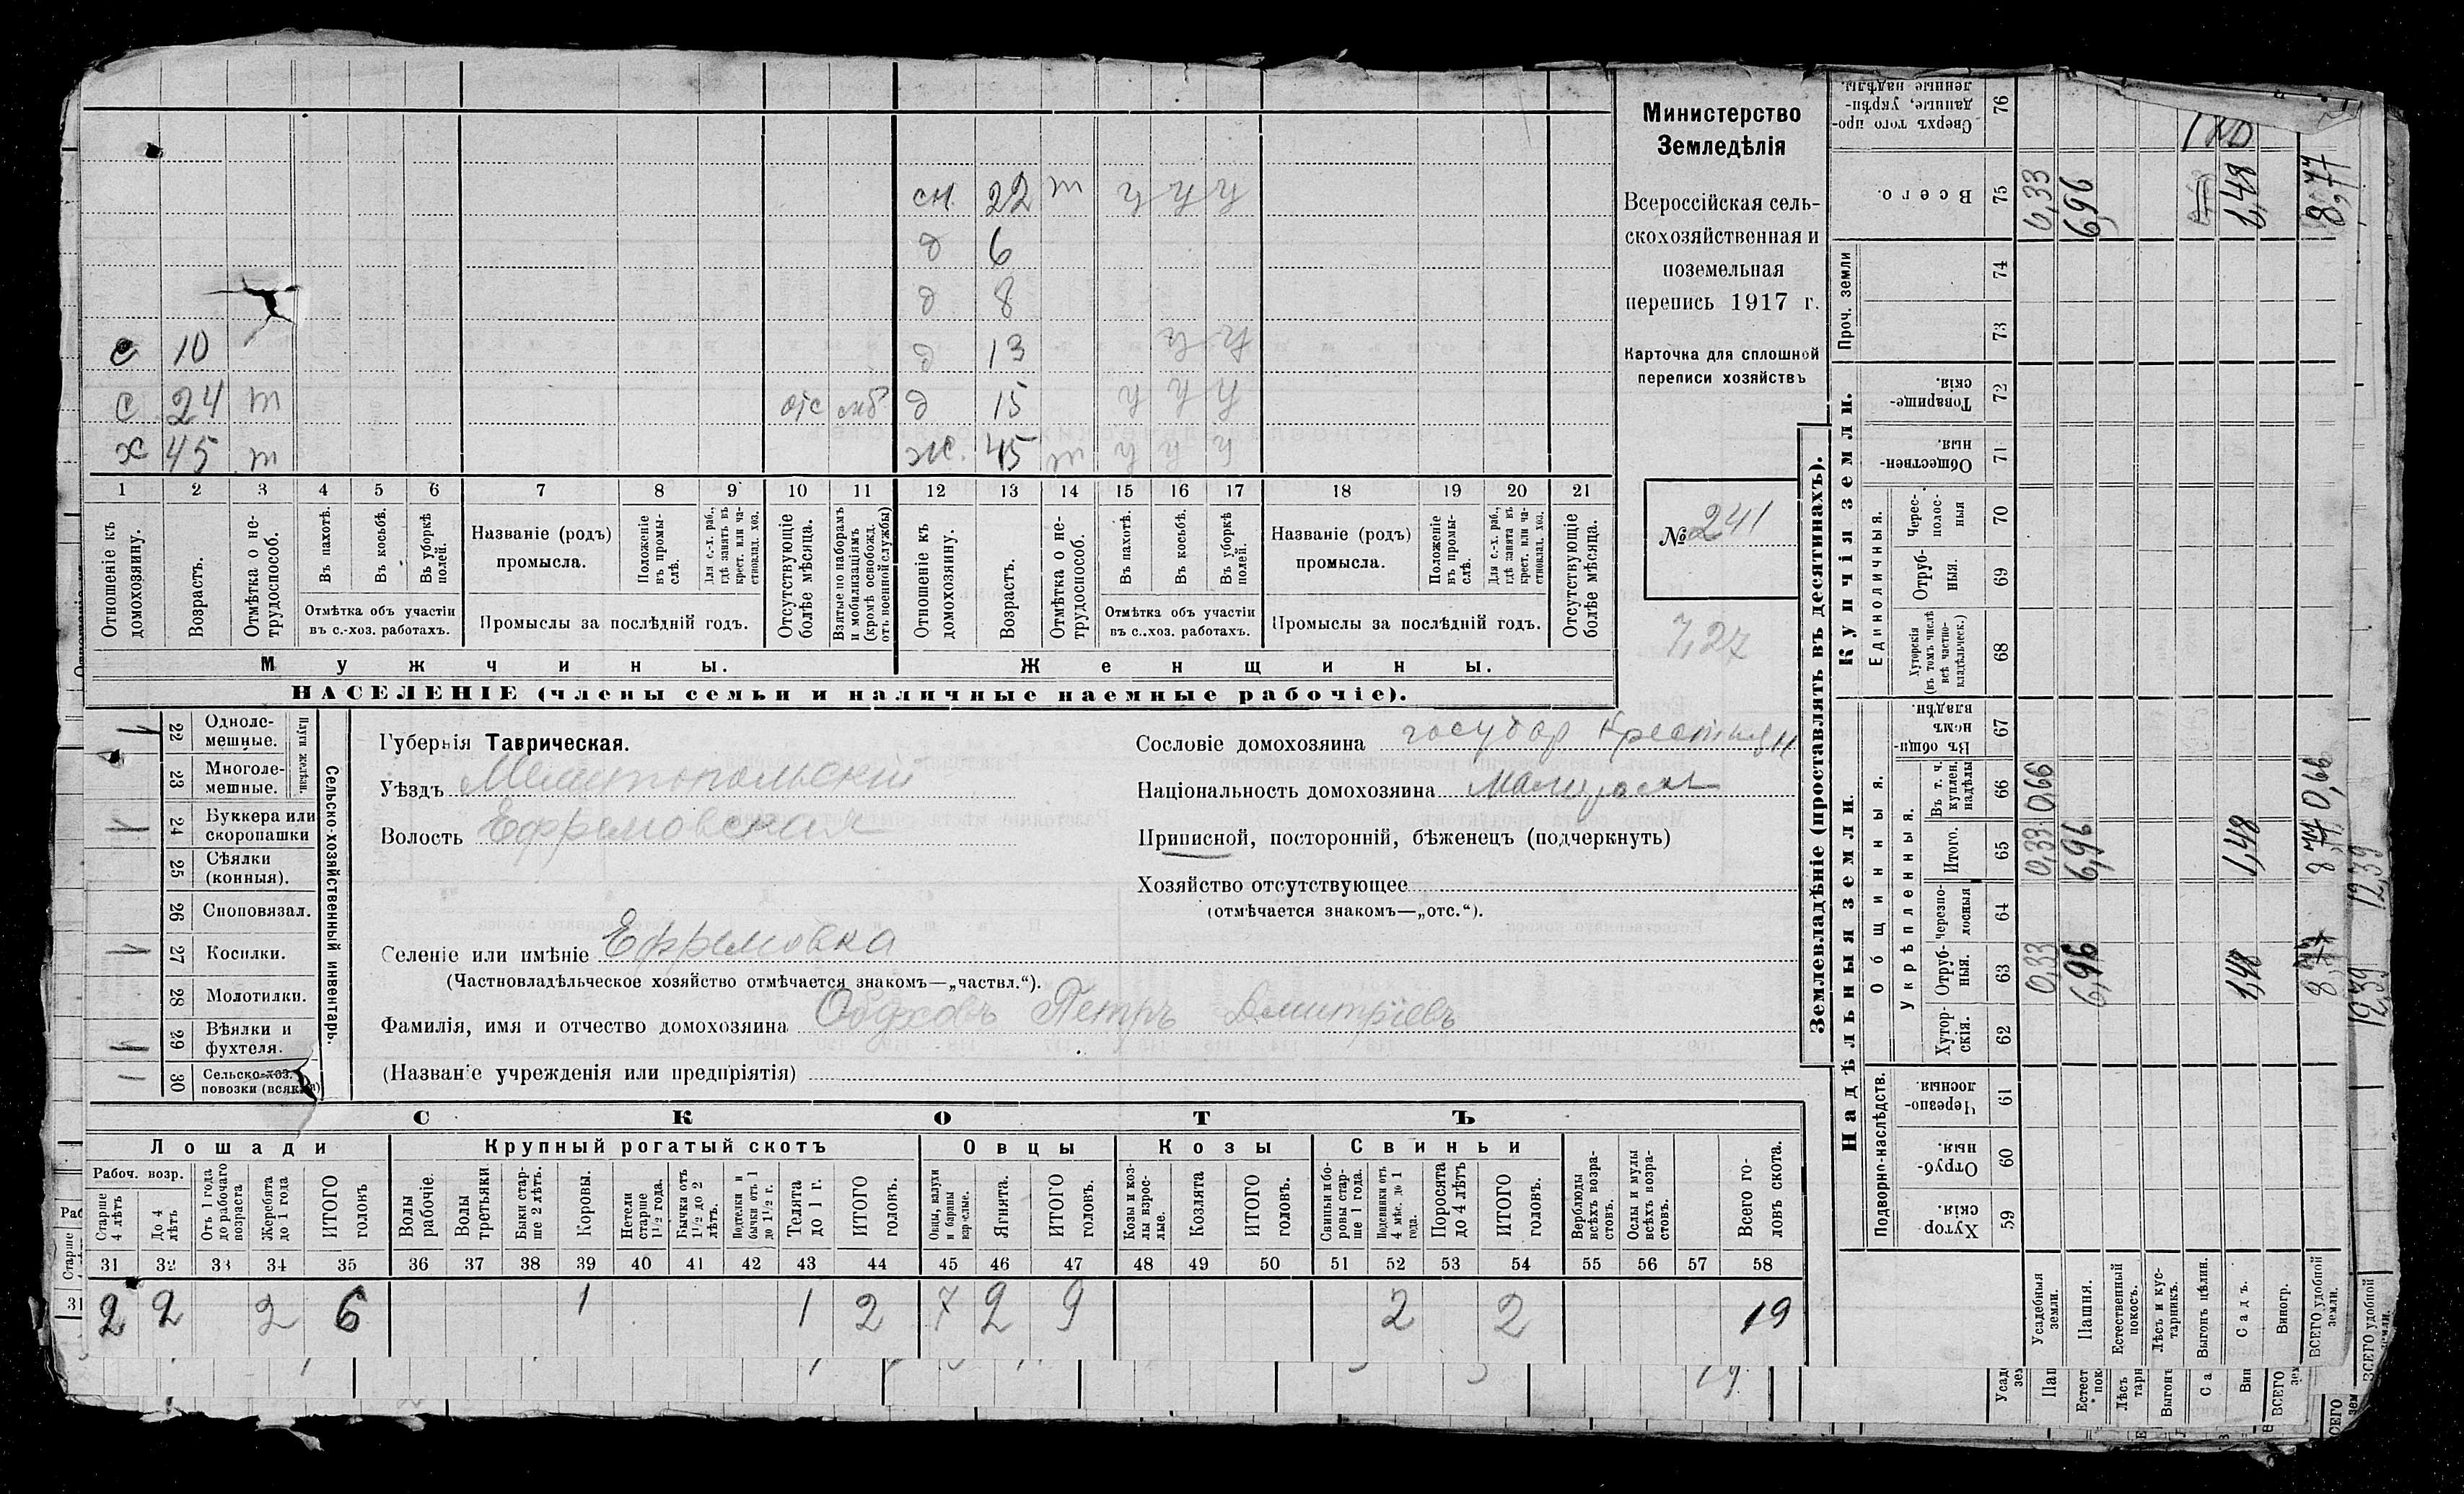 сн. 22 т у у у
д 6
д 8
с 10 д 13 у у
с 24 т отс моб д 15 у у у
х 45 т ж. 45 т у у у
1 2 3 4 5 6 7 8 9 10 11 12 13 14 15 16 17 18 19 20 21
Отношеніе къ домохозяину.
Возрастъ.
Отмѣтка о не-трудоспособ.
Въ пахотѣ.
Въ косьбѣ.
Въ уборкѣ полей.
Названіе (родъ) промысла.
Положеніе въ промы-слѣ.
Для с.-х. раб., гдѣ занятъ въ крест. или ча-стновлад. хоз.
Отсутствующіе болѣе мѣсяца.
Взятые по наборамъ и мобилизаціямъ (кромѣ освобожд. отъ военной службы)
Отношеніе къ домохозяину.
Возрастъ.
Отмѣтка о не-трудоспособ.
Въ пахотѣ.
Въ косьбѣ.
Въ уборкѣ полей.
Названіе (родъ) промысла.
Положеніе въ промы-слѣ.
Для с.-х. раб., гдѣ занята въ крест. или ча-стновлад. хоз.
Отсутствующіе болѣе мѣсяца.
Отмѣтка объ участіи въ с.-хоз. работахъ.
Промыслы за послѣдній годъ.
Отмѣтка объ участіи въ с..хоз. работахъ.
Промыслы за послѣдній годъ.
Мужчины.
Женщины.
НАСЕЛЕНІЕ (члены семьи и наличные наемные рабочіе).
Министерство
Земледѣлія
Всероссійская сель-
скохозяйственная и
поземельная
перепись 1917 г.
Карточка для сплошной
переписи хозяйствъ
№ 241
7,27
22 Одноле-мешные.
23 Многоле-мешные.
Плуги желѣзн.
24 Буккера или скоропашки
25 Сѣялки (конныя).
26 Сноповязал.
27 Косилки.
28 Молотилки.
29 Вѣялки и фухтеля.
30 Сельско-хоз. повозки
Сельско-хозяйственный инвентарь.
Губернія Таврическая.
Уѣздъ Мелитопольскій
Волость Ефремовская
Сословіе домохозяина государ крестьян
Національность домохозяина малоросъ
Приписной, посторонній, бѣженецъ (подчеркнуть)
Хозяйство отсутствующее
(отмѣчается знакомъ—„отс.“).
Селеніе или имѣніе Ефремовка
(Частновладѣльческое хозяйство отмѣчается знакомъ—„частвл.“).
Фамилія, имя и отчество домохозяина Обуховъ Петръ Дмитріевъ
(Названіе учрежденія или предпріятія)
СКОТЪ
Лошади
Крупный рогатый скотъ
Овцы
Козы
Свиньи
Рабоч. возр.
Старше 4 лѣтъ
До 4 лѣтъ
Отъ 1 года до рабочаго возраста
Жеребята до 1 года
ИТОГО головъ
Волы рабочіе.
Волы третьяки.
Быки стар-ше 2 лѣтъ.
Коровы.
Нетели старше 1½ года.
Бычки отъ 1½ до 2 лѣтъ.
Подтелки и бычки отъ 1 до 1½ г.
Телята до 1 г.
ИТОГО головъ.
Овцы, валухи и бараны взрослые.
Ягнята.
ИТОГО головъ.
Козы и коз-лы взрос-лые.
Козлята
ИТОГО головъ.
Свиньи и бо-ровы стар-ше 1 года.
Подсвинки отъ 4 мѣс. до 1 года.
Поросята до 4 лѣтъ
ИТОГО головъ.
Верблюды всѣхъ возра-стовъ.
Ослы и мулы всѣхъ возра-стовъ.
Всего го-ловъ скота.
31 32 33 34 35 36 37 38 39 40 41 42 43 44 45 46 47 48 49 50 51 52 53 54 55 56 57 58
2 2 2 6 1 1 2 7 2 9 2 2 19
19
Землевладѣніе (проставлять въ десятинахъ).
Купчія земли.
Надѣльныя земли.
Сверхъ того про-данные, укрѣп-ленные надѣлы. 76
Всего. 75
Проч. земли 74 73
Товарище-скія. 72
Обществен-ныя. 71
Единоличныя.
Черес-полос-ныя 70
Отруб-ныя. 69
Хуторскія (въ томъ числѣ всѣ частно-владѣльческ.) 68
Общинныя.
Въ общин-номъ владѣн. 67
Укрѣпленныя.
Въ т. ч. куплен. надѣлы 66
Итого. 65
Черезпо-лосныя 64
Отруб-ныя. 63
Хутор-скія. 62
Подворно-наслѣдств.
Черезпо-лосныя 61
Отруб-ныя. 60
Хутор-скія. 59
Усадебныя земли. 0,33 0,33 0,66 0,33
Пашня. 6,96 6,96 6,96
Естественный покосъ.
Лѣсъ и кус-тарникъ.
Выгонъ цѣлин.
Садъ. 1,48 1,48 1,48
Виногр.
ВСЕГО удобной земли. 8,77 8,77 0,66 8,77
12,39 12,39
ВСЕГО удобной земли.